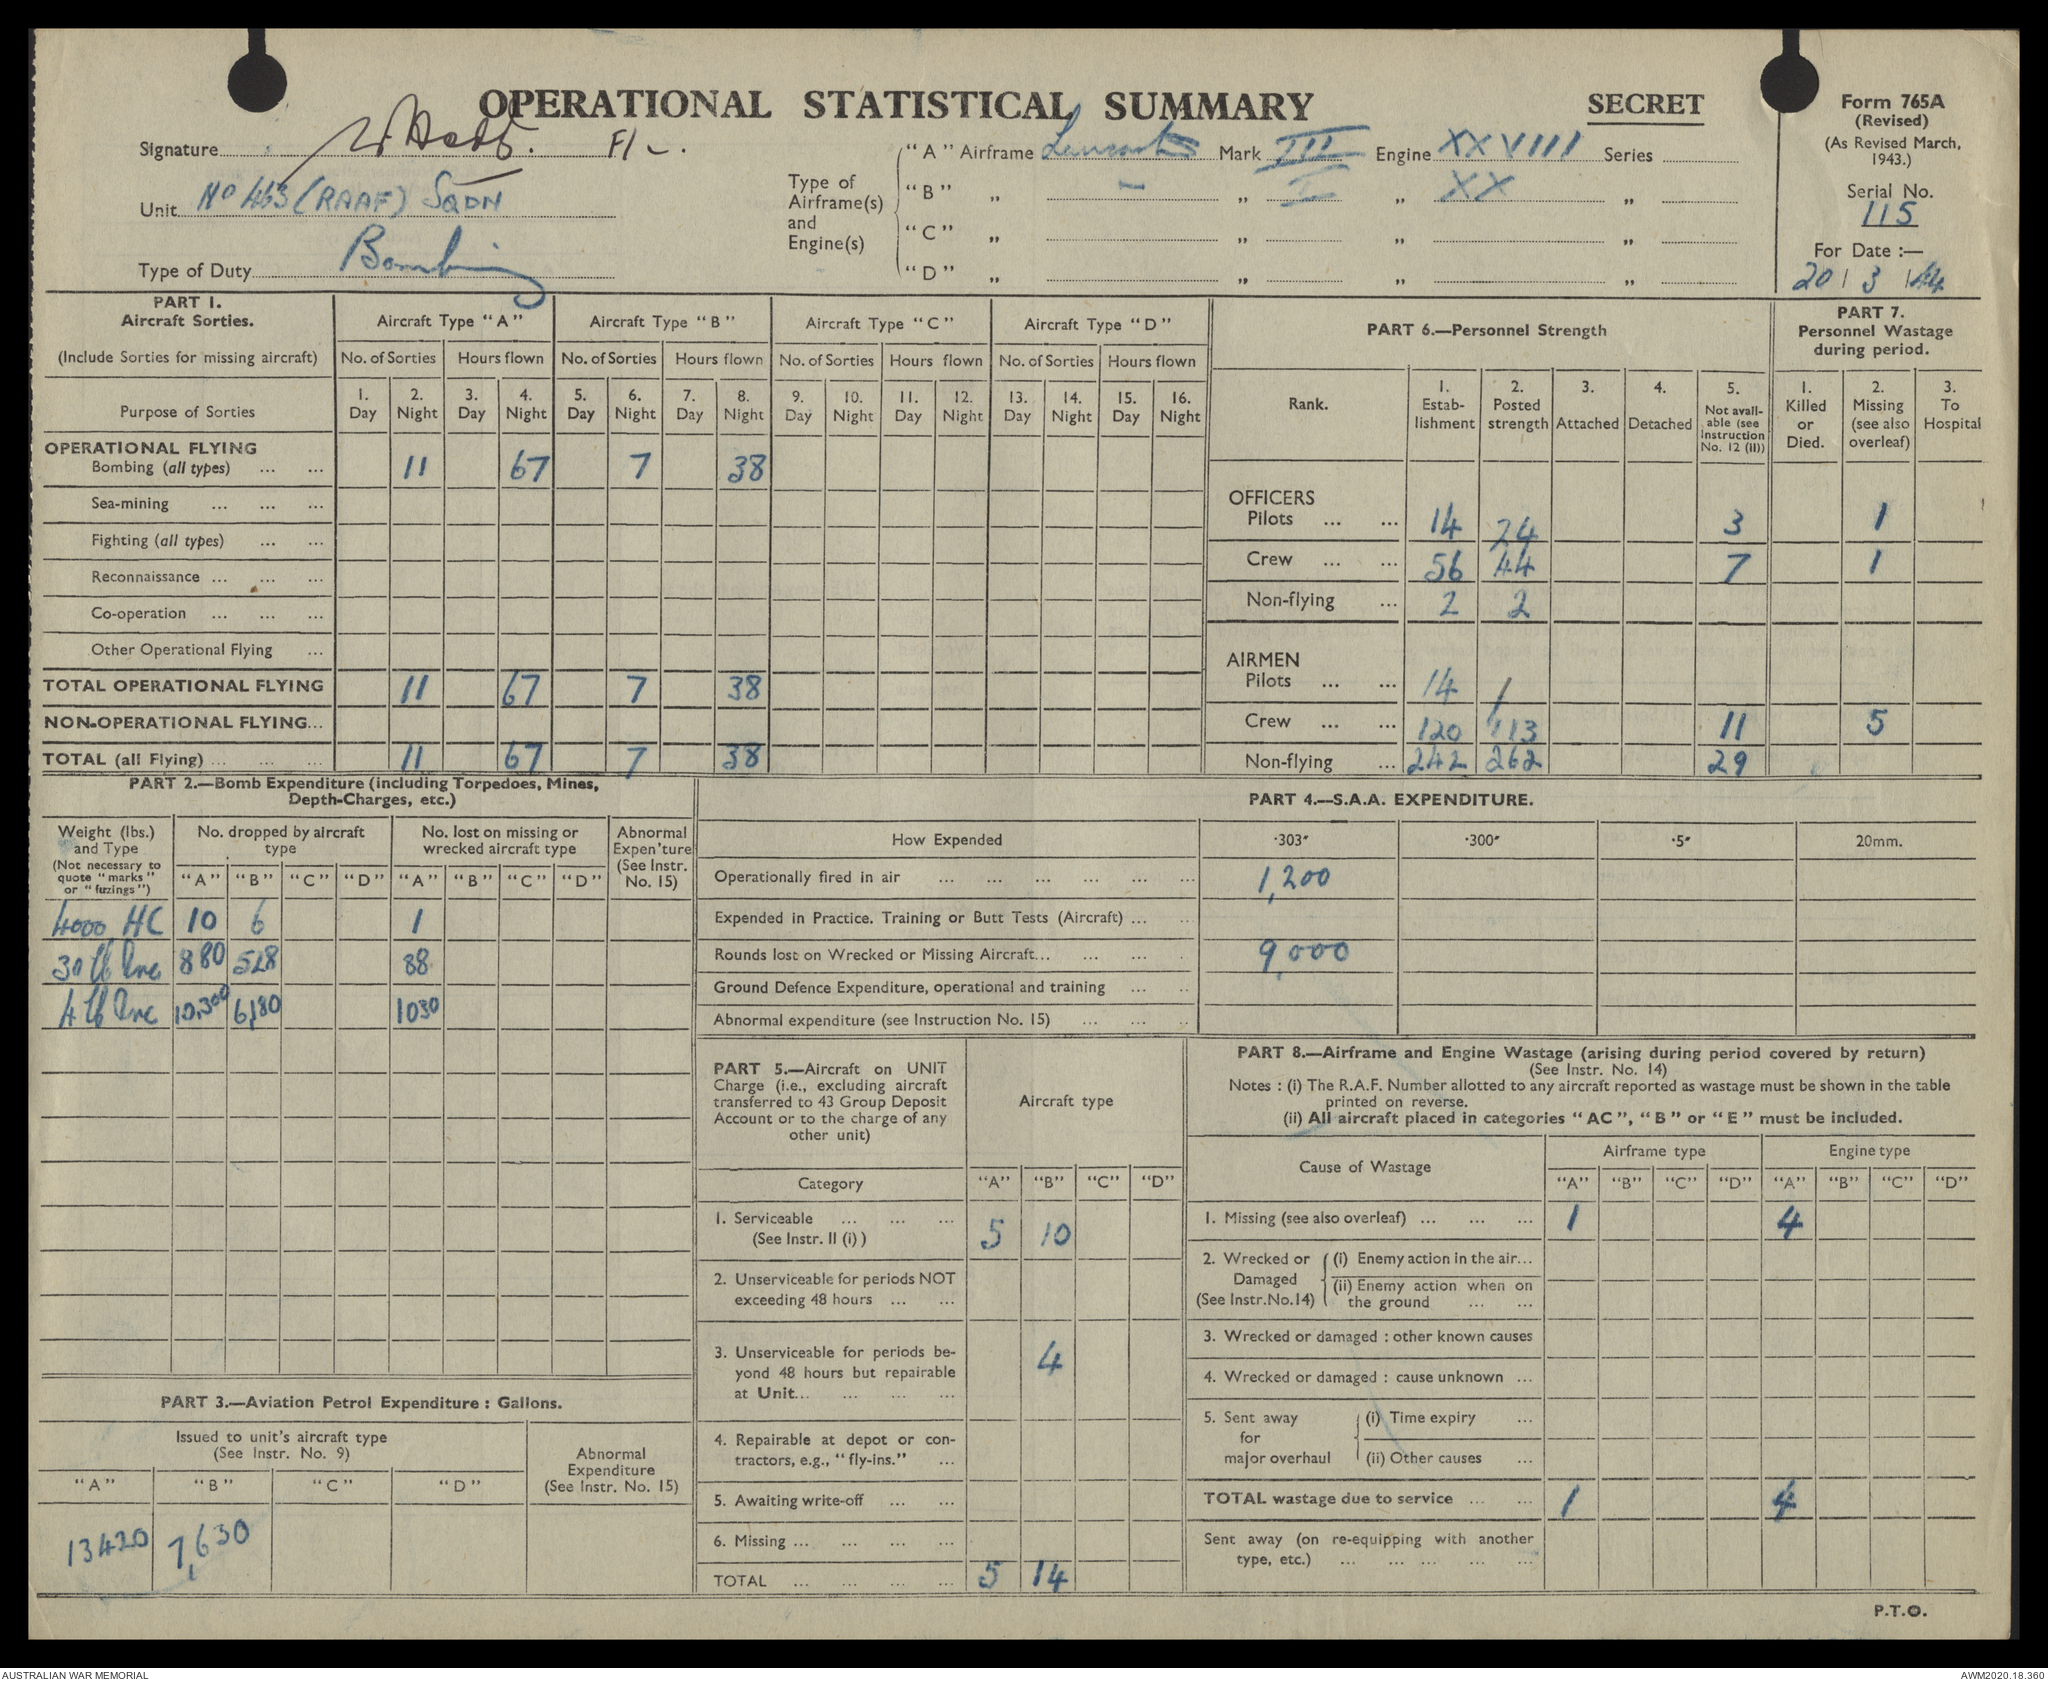 OPERATIONAL STATISTICAL SUMMARY
SECRET
Form 765A
(Revised)
(As Revised March,
1943.)
Serial No.
115
For Date :—
20 / 3 / 44
Signature F/L.
Unit No 463 (RAAF) SQDN
Type of Duty Bombing
Type of
Airframe(s)
and
Engine(s)
"A" Airframe Lancaster Mark III Engine XXVIII Series
"B" „ — „ I „ XX „
"C" „ „ „ „
"D" „ „ „ „
PART 1.
Aircraft Sorties.
(Include Sorties for missing aircraft)
Purpose of Sorties
Aircraft Type "A" Aircraft Type "B" Aircraft Type "C" Aircraft Type "D"
No. of Sorties Hours flown No. of Sorties Hours flown No. of Sorties Hours flown No. of Sorties Hours flown
1. 2. 3. 4. 5. 6. 7. 8. 9. 10. 11. 12. 13. 14. 15. 16.
Day Night Day Night Day Night Day Night Day Night Day Night Day Night Day Night
OPERATIONAL FLYING
Bombing (all types) ... ... 11 67 7 38
Sea-mining ... ... ...
Fighting (all types) ... ...
Reconnaissance ... ... ...
Co-operation ... ... ...
Other Operational Flying ...
TOTAL OPERATIONAL FLYING 11 67 7 38
NON-OPERATIONAL FLYING...
TOTAL (all Flying) ... ... ... 11 67 7 38
PART 6.—Personnel Strength
Rank.
1. Estab-lishment
2. Posted strength
3. Attached
4. Detached
5. Not avail-able (see Instruction No. 12 (II))
PART 7.
Personnel Wastage
during period.
1. Killed or Died.
2. Missing (see also overleaf)
3. To Hospital
OFFICERS
Pilots ... ... 14 24 3 1
Crew ... ... 56 44 7 1
Non-flying ... 2 2
AIRMEN
Pilots ... ... 14 /
Crew ... ... 120 113 11 5
Non-flying ... 242 262 29
PART 2.—Bomb Expenditure (including Torpedoes, Mines,
Depth-Charges, etc.)
Weight (lbs.)
and Type
(Not necessary to
quote "marks"
or "fuzings")
No. dropped by aircraft
type
No. lost on missing or
wrecked aircraft type
Abnormal
Expen'ture
(See Instr.
No. 15)
"A" "B" "C" "D" "A" "B" "C" "D"
4000 HC 10 6 1
30 lb Inc 880 528 88
4 lb Inc 10,300 6,180 1030
PART 3.—Aviation Petrol Expenditure : Gallons.
Issued to unit's aircraft type
(See Instr. No. 9)
Abnormal
Expenditure
(See Instr. No. 15)
"A" "B" "C" "D"
13420 7,630
PART 4.—S.A.A. EXPENDITURE.
How Expended ·303″ ·300″ ·5″ 20mm.
Operationally fired in air ... ... ... ... ... ... 1,200
Expended in Practice. Training or Butt Tests (Aircraft) ... ...
Rounds lost on Wrecked or Missing Aircraft... ... ... . 9,000
Ground Defence Expenditure, operational and training ... ..
Abnormal expenditure (see Instruction No. 15) ... ... ..
PART 5.—Aircraft on UNIT
Charge (i.e., excluding aircraft
transferred to 43 Group Deposit
Account or to the charge of any
other unit)
Aircraft type
Category "A" "B" "C" "D"
1. Serviceable ... ... ...
(See Instr. II (i) ) 5 10
2. Unserviceable for periods NOT
exceeding 48 hours ... ...
3. Unserviceable for periods be-
yond 48 hours but repairable 4
at Unit... ... ... ...
4. Repairable at depot or con-
tractors, e.g., "fly-ins." ...
5. Awaiting write-off ... ...
6. Missing ... ... ... ...
TOTAL ... ... ... ... 5 14
PART 8.—Airframe and Engine Wastage (arising during period covered by return)
(See Instr. No. 14)
Notes : (i) The R.A.F. Number allotted to any aircraft reported as wastage must be shown in the table
printed on reverse.
(ii) All aircraft placed in categories "AC", "B" or "E" must be included.
Cause of Wastage Airframe type Engine type
"A" "B" "C" "D" "A" "B" "C" "D"
1. Missing (see also overleaf) ... ... ... 1 4
2. Wrecked or
Damaged
(See Instr.No.14)
(i) Enemy action in the air...
(ii) Enemy action when on
the ground ... ...
3. Wrecked or damaged : other known causes
4. Wrecked or damaged : cause unknown ...
5. Sent away
for
major overhaul
(i) Time expiry ...
(ii) Other causes ...
TOTAL wastage due to service ... ... 1 4
Sent away (on re-equipping with another
type, etc.) ... ... ... ... ...
P.T.O.
AUSTRALIAN WAR MEMORIAL
AWM2020.18.360